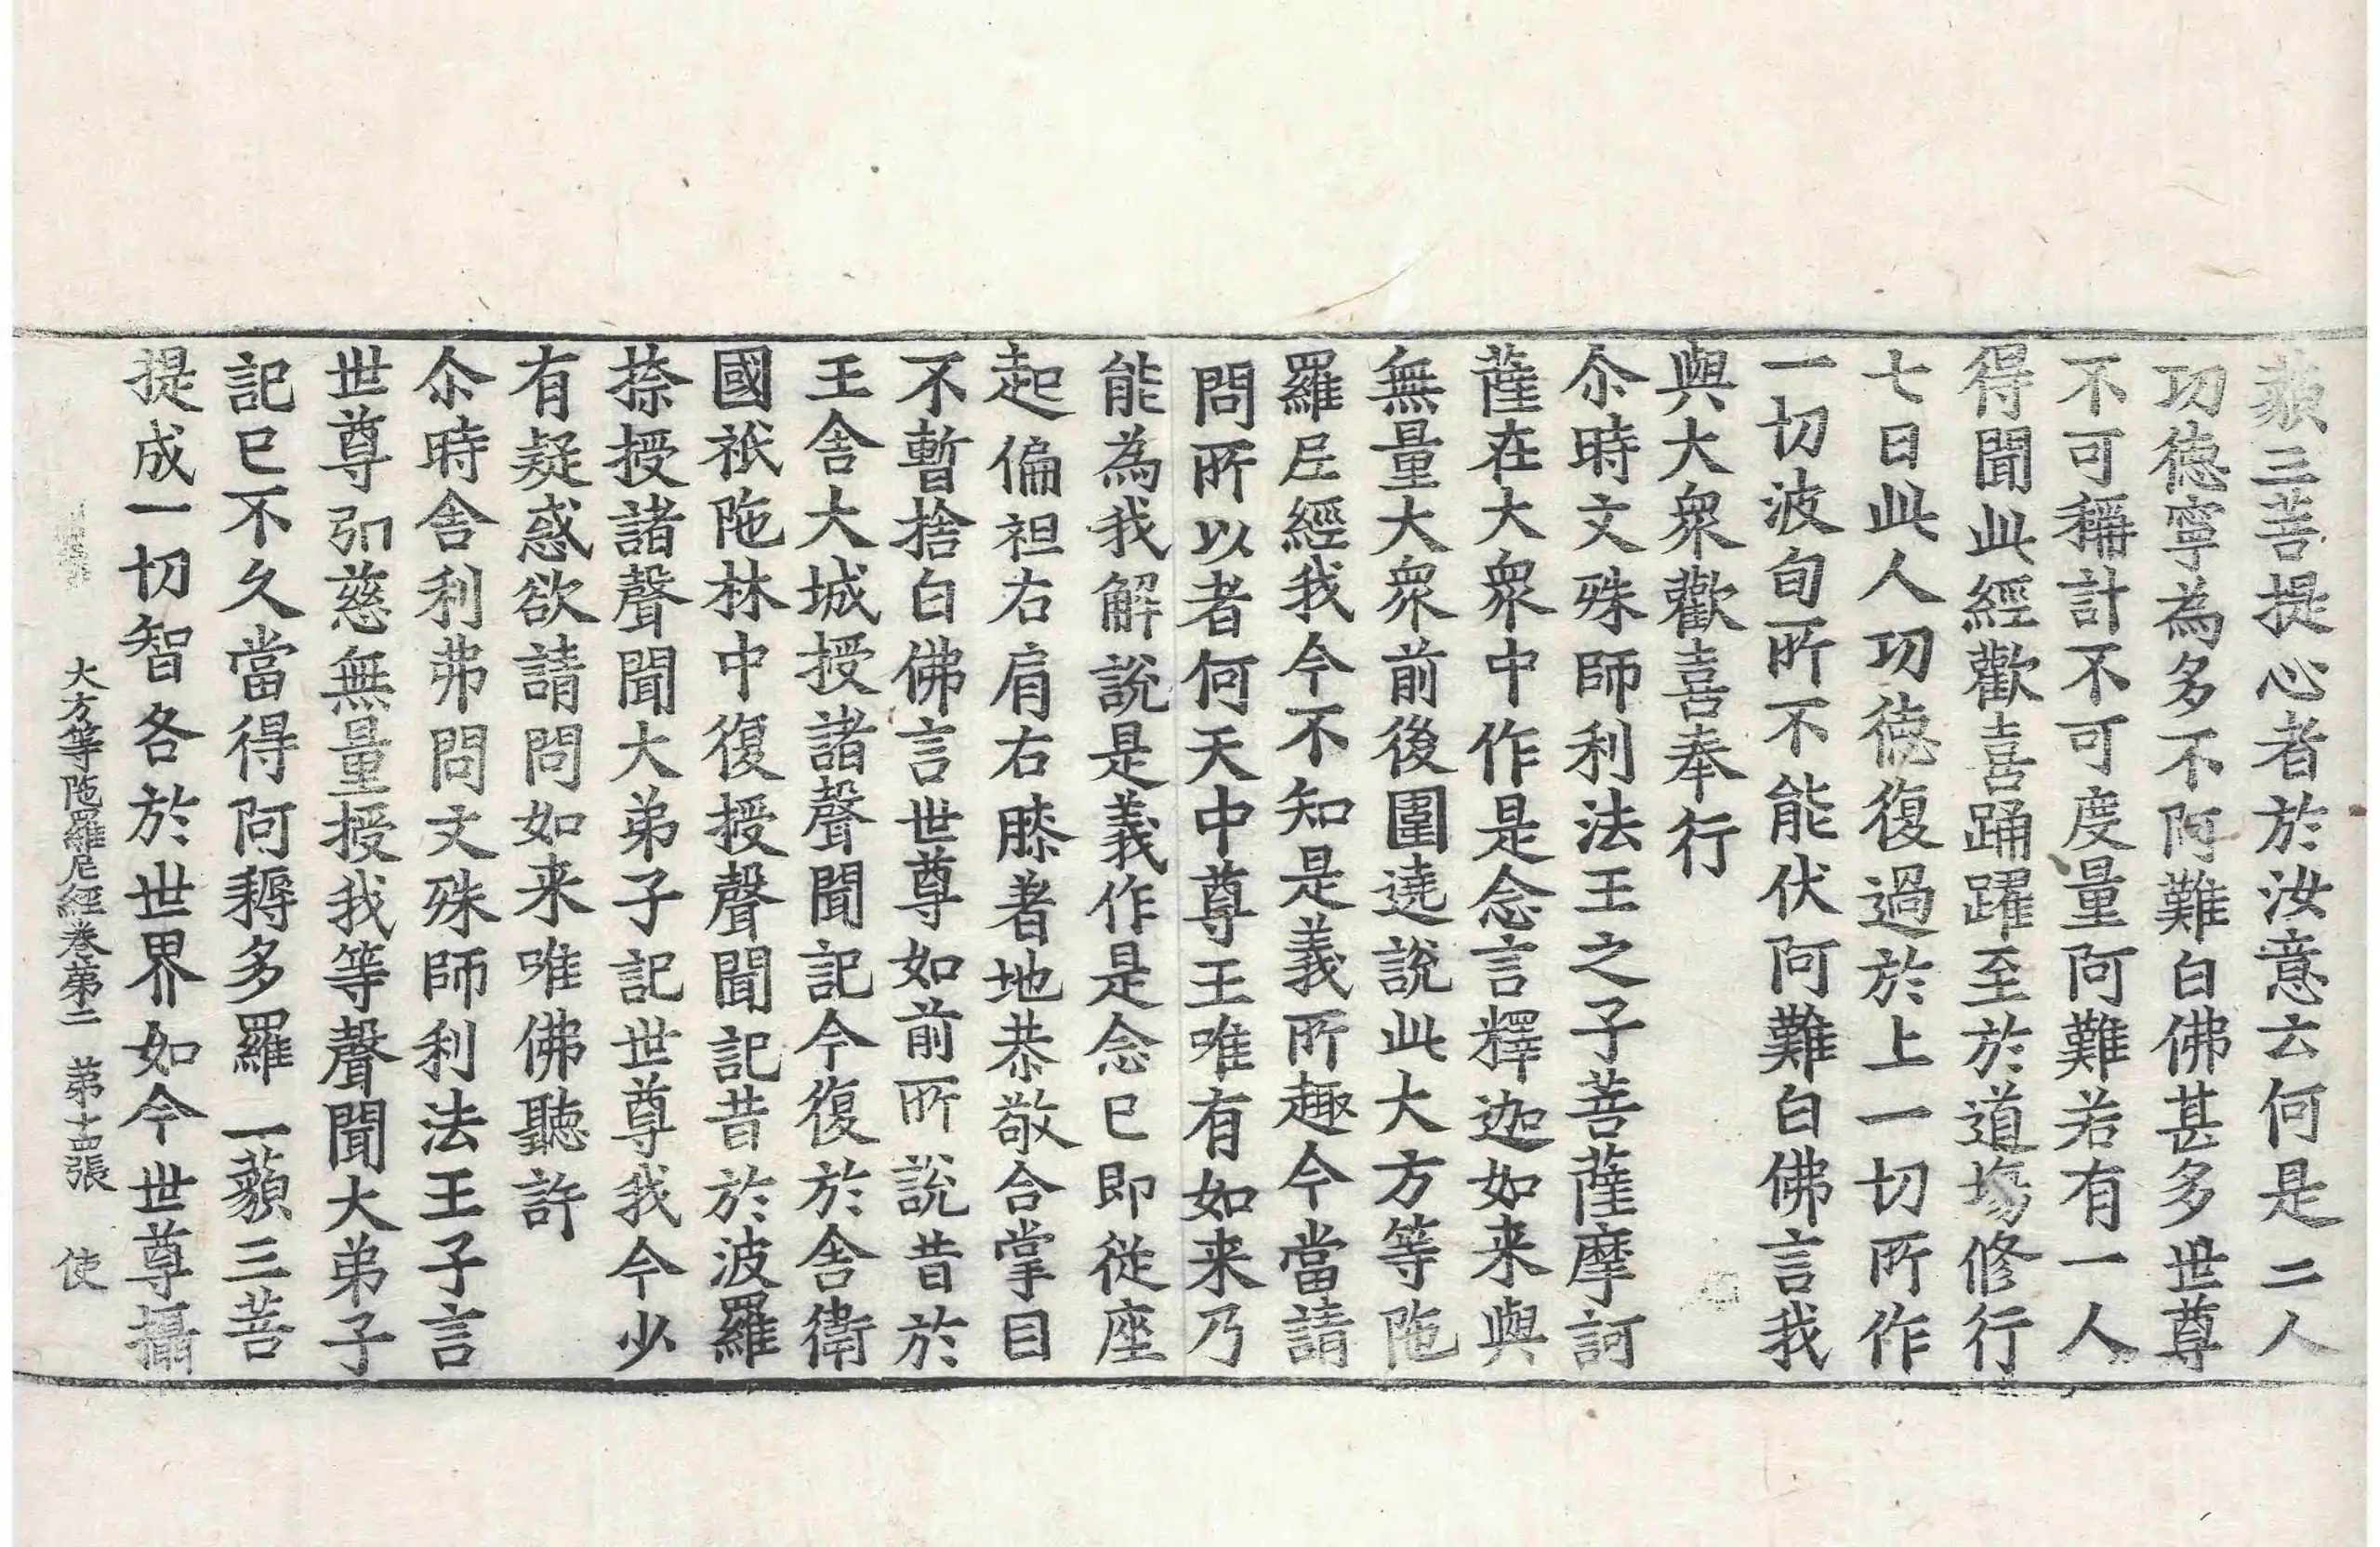 藐三菩提心者於汝意云何是二人
功德寧為多不阿難白佛甚多世尊
不可稱計不可度量阿難若有一人
得聞此經歡喜踊躍至於道場修行
七日此人功德復過於上一切所作
一切波旬所不能伏阿難白佛言我
與大衆歡喜奉行
尒時文殊師利法王之子菩薩摩訶
薩在大衆中作是念言釋迦如来與
無量大衆前後圍遶說此大方等陁
羅尼經我今不知是義所趣今當請
問所以者何天中尊王唯有如来乃
能為我解說是義作是念已即從座
起偏袒右肩右膝著地恭敬合掌目
不暫捨白佛言世尊如前所說昔於
王舍大城授諸聲聞記今復於舍衛
國祇陁林中復授聲聞記昔於波羅
㮈授諸聲聞大弟子記世尊我今少
有疑惑欲請問如来唯佛聽許
尒時舍利弗問文殊師利法王子言
世尊弘慈無量授我等聲聞大弟子
記已不久當得阿耨多羅三藐三菩
提成一切智各於世界如今世尊攝
大方等陁羅尼經卷第二　第十四張　使